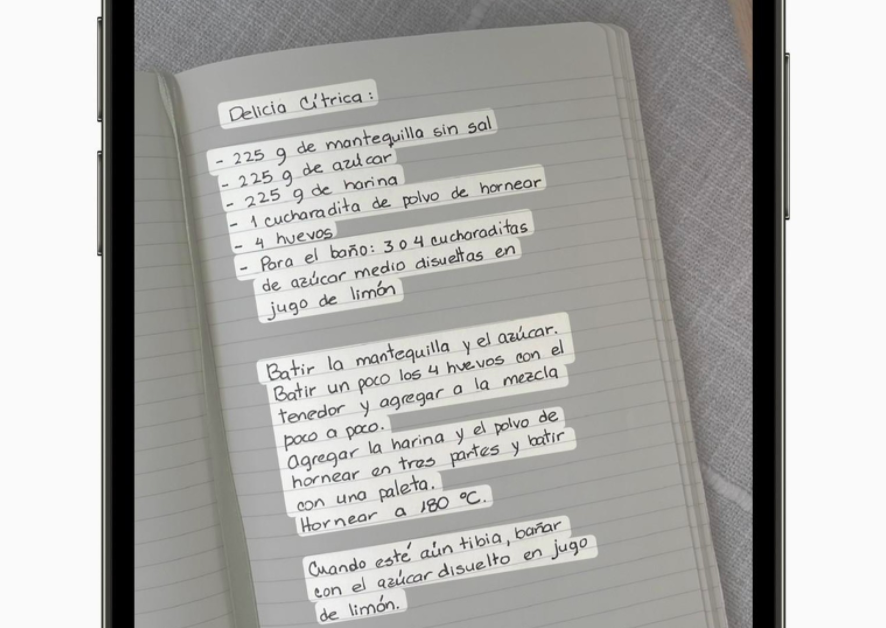 Delicia Cítrica:
- 225 g de mantequilla sin sal
- 225 g de azúcar
- 225 g de harina
- 1 cucharadita de polvo de hornear
- 4 huevos
- Para el baño: 3 o 4 cucharaditas
de azúcar medio disueltas en
jugo de limón
Batir la mantequilla y el azúcar.
Batir un poco los 4 huevos con el
tenedor y agregar a la mezcla
poco a poco.
Agregar la harina y el polvo de
hornear en tres partes y batir
con una paleta.
Hornear a 180 °C.
Cuando esté aún tibia, bañar
con el azúcar disuelto en jugo
de limón.